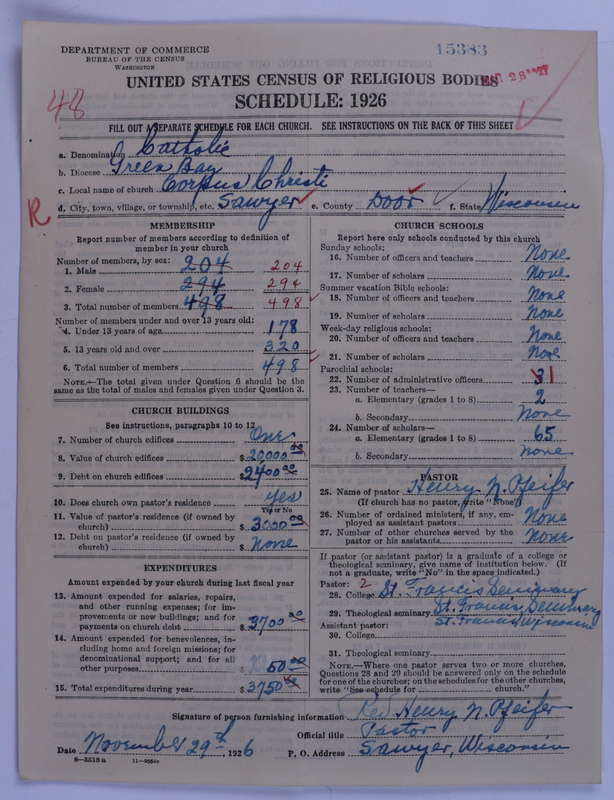 DEPARTMENT OF COMMERCE
BUREAU OF THE CENSUS
WASHINGTON
15383
UNITED STATES CENSUS OF RELIGIOUS BODIES
SCHEDULE: 1926
48
FILL OUT A SEPARATE SCHEDULE FOR EACH CHURCH. SEE INSTRUCTIONS ON THE BACK OF THIS SHEET
a. Denomination Catholic
b. Diocese Green Bay
c. Local name of church Corpus Christi
d. City, town, village, or township, etc. Sawyer e. County Door f. State Wisconsin
R
MEMBERSHIP
Report number of members according to definition of member in your church
Number of members, by sex:
1. Male 204 204
2. Female 294 294
3. Total number of members 498 498
Number of members under and over 13 years old:
4. Under 13 years of age 178
5. 13 years old and over 320
6. Total number of members 498
NOTE.—The total given under Question 6 should be the same as the total of males and females given under Question 3.
CHURCH BUILDINGS
See instructions, paragraphs 10 to 12
7. Number of church edifices One
8. Value of church edifices $20000 00
9. Debt on church edifices $2400 00
10. Does church own pastor's residence Yes
Yes or No
11. Value of pastor's residence (if owned by church) $3000 00
12. Debt on pastor's residence (if owned by church) $ None
EXPENDITURES
Amount expended by your church during last fiscal year
13. Amount expended for salaries, repairs, and other running expenses; for improvements or new buildings; and for payments on church debt $3700 00
14. Amount expended for benevolences, including home and foreign missions; for denominational support; and for all other purposes $ 50 00
15. Total expenditures during year $3750
CHURCH SCHOOLS
Report here only schools conducted by this church
Sunday schools:
16. Number of officers and teachers None
17. Number of scholars None
Summer vacation Bible schools:
18. Number of officers and teachers None
19. Number of scholars None
Week-day religious schools:
20. Number of officers and teachers None
21. Number of scholars None
Parochial schools:
22. Number of administrative officers 3 1
23. Number of teachers—
a. Elementary (grades 1 to 8) 2
b. Secondary None
24. Number of scholars—
a. Elementary (grades 1 to 8) 65
b. Secondary none
PASTOR
25. Name of pastor Henry N. Pfeifer
(If church has no pastor, write "None")
26. Number of ordained ministers, if any, employed as assistant pastors None
27. Number of other churches served by the pastor or his assistants None
If pastor (or assistant pastor) is a graduate of a college or theological seminary, give name of institution below. (If not a graduate, write "No" in the space indicated.)
Pastor: 2
28. College St. Francis Seminary
29. Theological seminary St. Francis Seminary
Assistant pastor: St. Francis, Wisconsin
30. College
31. Theological seminary
NOTE.—Where one pastor serves two or more churches, Questions 28 and 29 should be answered only on the schedule for one of the churches; on the schedules for the other churches, write "See schedule for church."
Signature of person furnishing information Rev Henry N. Pfeifer
Official title Pastor
Date November 29th, 1926 P. O. Address Sawyer, Wisconsin
8-5518a